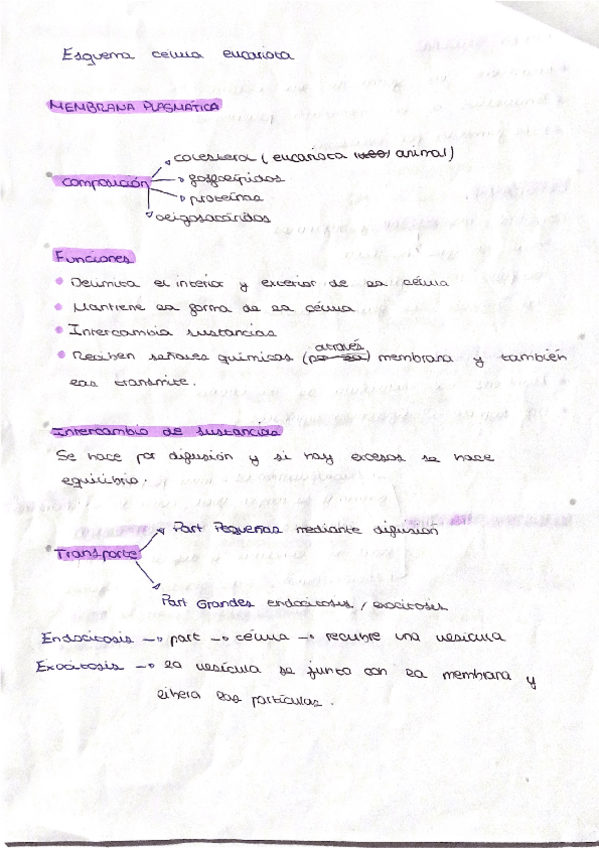 Esquema célula eucariota
MEMBRANA PLASMÁTICA
colesterol (eucariota animal)
composición fosfolípidos
proteínas
oligosacáridos
Funciones
• Delimita el interior y exterior de la célula
• Mantiene la forma de la célula
• Intercambia sustancias
• Reciben señales químicas (através) membrana y también
las transmite.
Intercambio de sustancias
Se hace por difusión y si hay excesos se hace
equilibrio.
Part Pequeñas mediante difusión
Transporte
Part Grandes endocitosis / exocitosis
Endocitosis → part → célula → recubre una vesícula
Exocitosis → la vesícula se junta con la membrana y
libera las partículas.